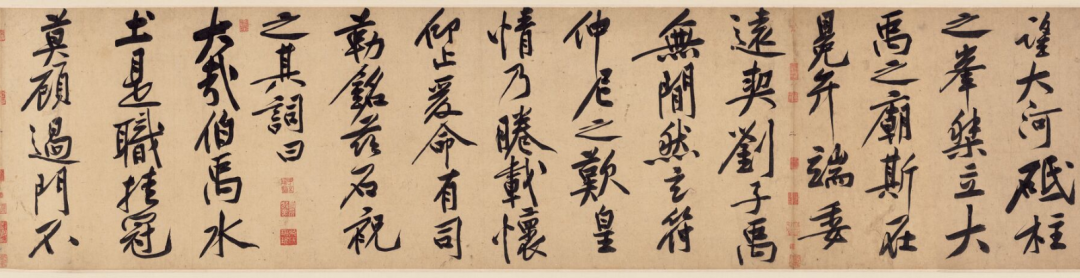 望大河砥柱
之峯桀立大
禹之廟斯在
冕弁端委
遠契劉子禹
無間然玄符
仲尼之歎皇
情乃睠載懷
仰止爰命有司
勒銘茲石祝
之其詞曰
大哉伯禹水
土是職挂冠
莫顧過門不